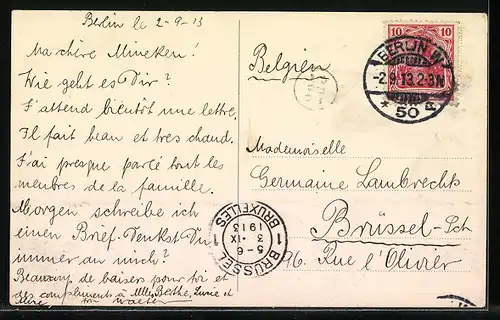 Berlin le 2-9-13
Ma chère Mineken!
Wie geht es Dir?
J'attend bientôt une lettre.
Il fait beau et tres chaud.
J'ai presque parlé tout les
menbres de la famille.
Morgen schreibe ich
einen Brief. Denkst Du
immer an mich?
Beaucoup de baisers pour toi et
des compliments à Mlle, Berthe, Lucie et
Belgien
Mademoiselle
Germaine Lambrechts
Brüssel-Sch
96. Rue l'Olivier
10 10
BERLIN W
-2.9.13.2-3N
* 50 a
BRÜSSEL 1
5-6
3 · IX
1913
1 BRUXELLES